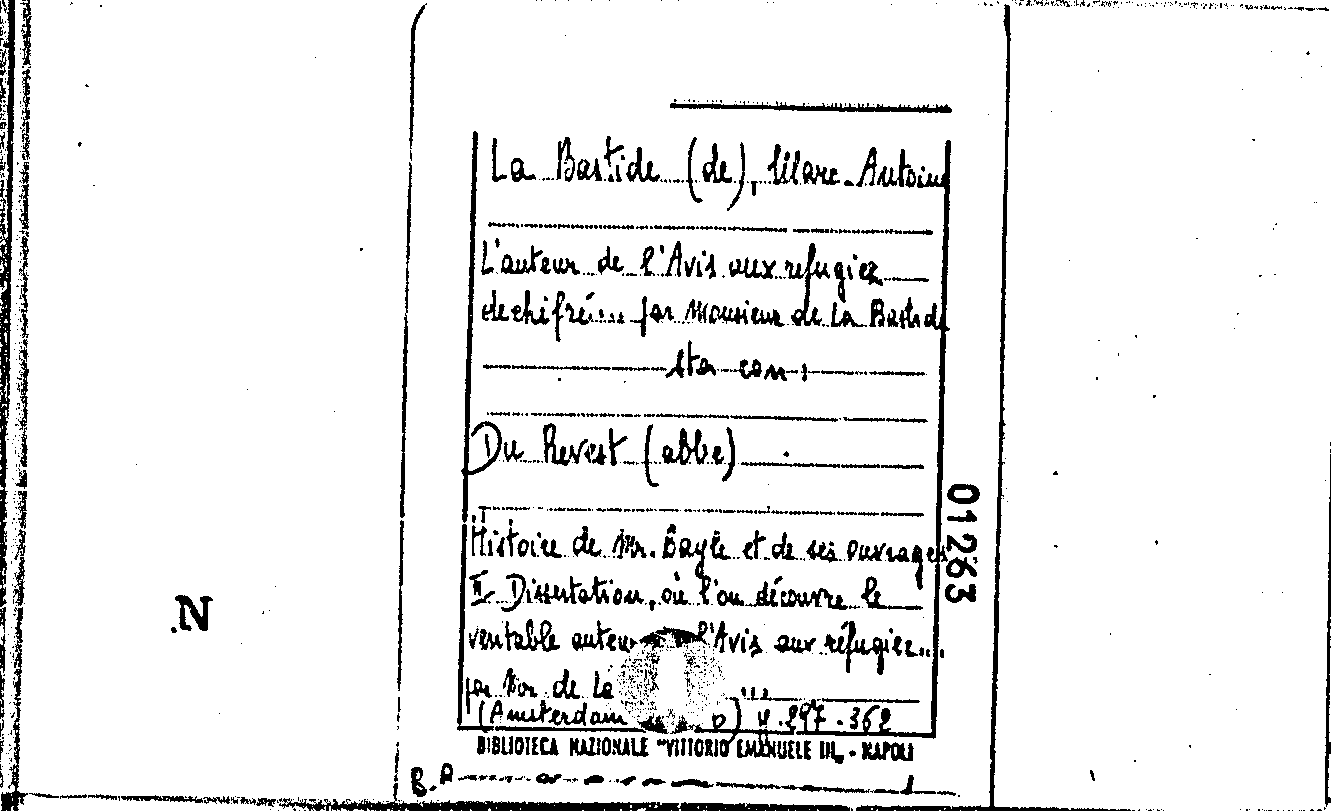 La Bastide (de), Marc-Antoine
L'auteur de l'Avis aux refugiez
dechifré... par Monsieur de La Bastide
sta con:
Du Revest (abbe)
Histoire de Mr. Bayle et de ses ouvrages
II Dissertation, où l'on découvre le
veritable auteur l'Avis aux réfugiez...
par Mr de la ...
(Amsterdam ) p. 297-362
BIBLIOTECA NAZIONALE "VITTORIO EMANUELE III" - NAPOLI
B.A
01263
N